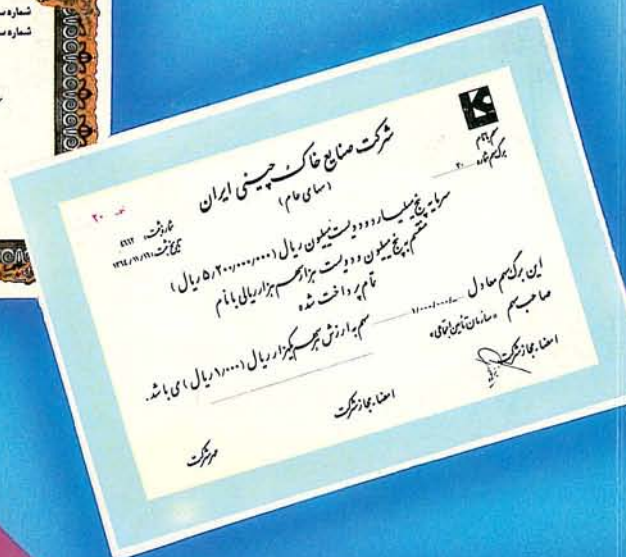 شماره س
شماره س
شرکت صنایع خاک چینی ایران
(سهامی عام)
سهم با نام
برگ سهم شماره ۲۰
۲۰
شماره ثبت:
تاریخ ثبت:
سرمایه پنج میلیارد و دویست میلیون ریال (۵,۲۰۰,۰۰۰,۰۰۰ ریال)
منقسم به پنج میلیون و دویست هزار سهم هزار ریالی با نام
تمام پرداخت شده
این برگ سهم معادل ۱/۰۰۰/۰۰۰/- سهم به ارزش هر سهم یکهزار ریال (۱,۰۰۰ ریال) می باشد.
صاحب سهم «سازمان تأمین اجتماعی»
امضاء مجاز شرکت
امضاء مجاز شرکت
مهر شرکت